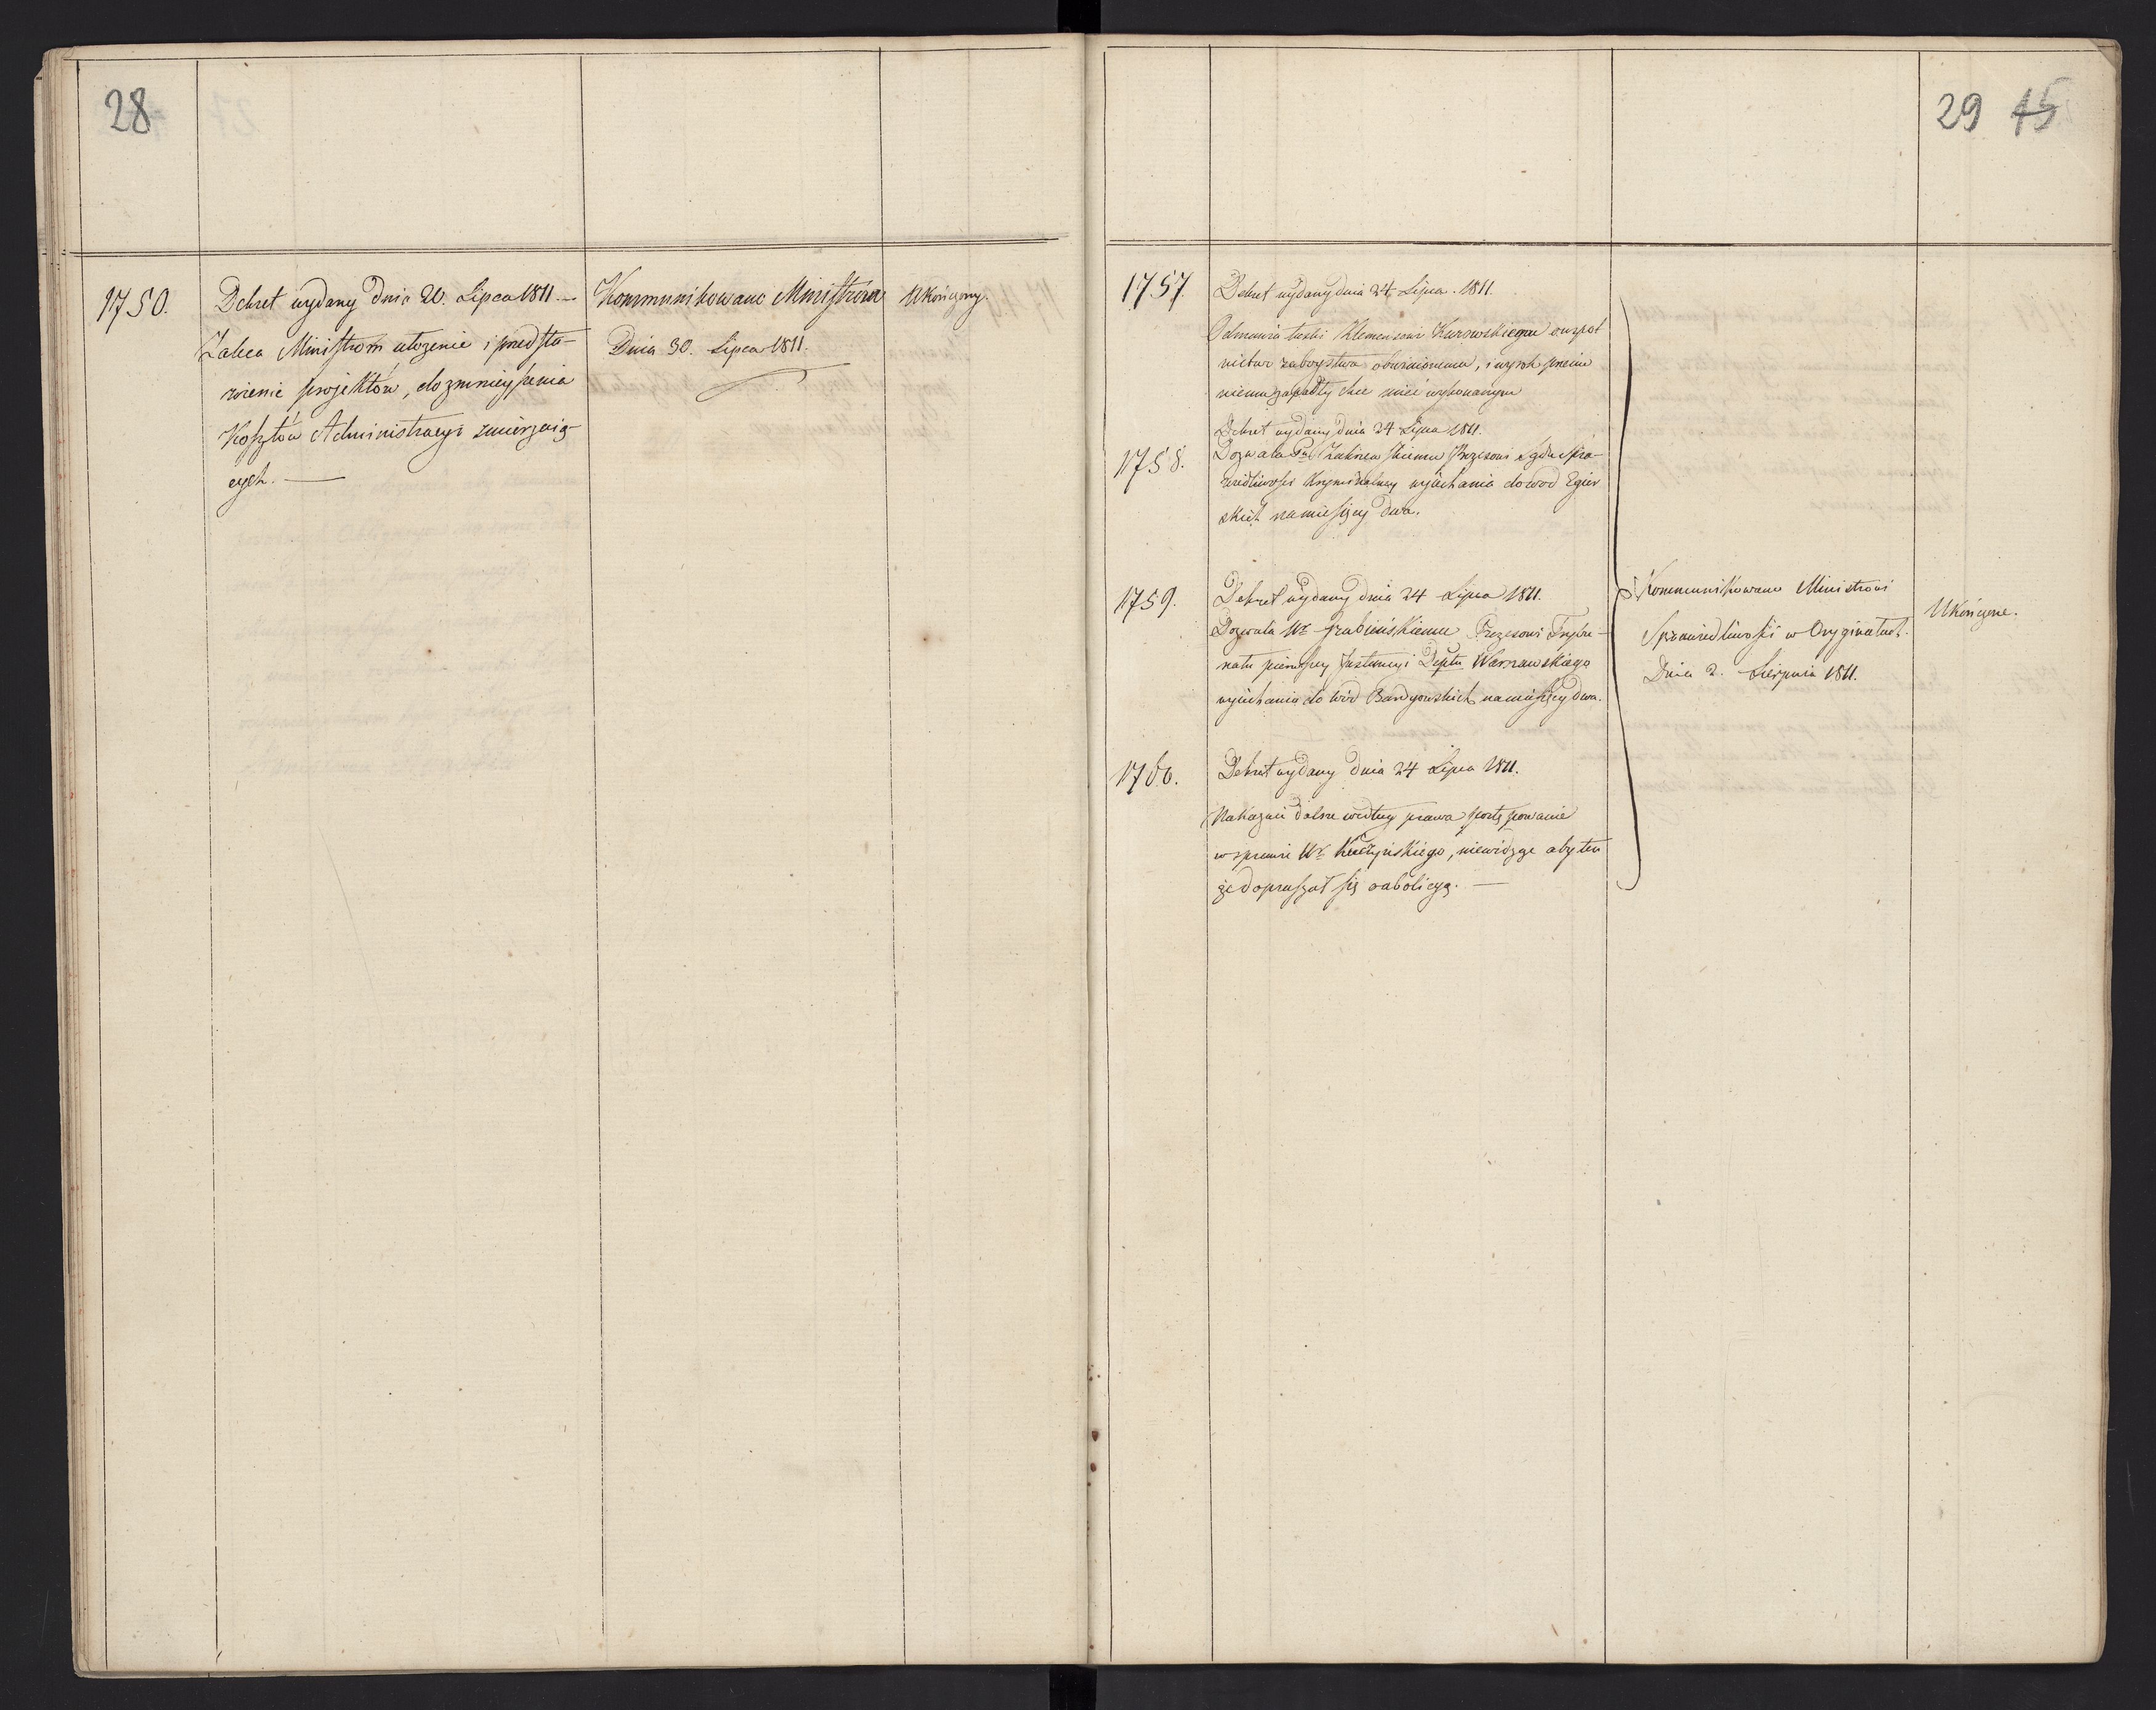 28
1750.
Dekret wydany Dnia 20. Lipca 1811. —
Zaleca Ministrom ułożenie i przedsta-
wienie projektów, do zmnieyszenia
Kosztów Administracyi zmierzaią-
cych. —
Kommunikowano Ministrom
Dnia 30. Lipca 1811.
Ukończony.
29 45
1757.
Dekret wydany dnia 24. Lipca. 1811.
Odmawia łaski Klemensowi Kurowskiemu o
zabóystwa obwinionemu, i wyrok przeciw
niemu zapadły chce mieć wykonanym
1758.
Dekret wydany dnia 24 Lipca 1811.
Dozwala Prezesowi Sądu Spra-
wiedliwości Kryminalney wyiechania do wod Egier
skich na miesięcy dwa.
1759.
Dekret wydany dnia 24 Lipca 1811.
Dozwala Ur Grabińskiemu Prezesowi Trybu-
nału pierwszey Instancyi Deptu Warszawskiego
wyiechania do wód Bardyowskich na miesięcy dwa.
1760.
Dekret wydany Dnia 24 Lipca 1811.
Nakazuie dalsze według prawa postępowanie
w sprawie Ur , niewidząc aby ten
że dopraszał się o abolicyą. —
Kommunikowano Ministrowi
Sprawiedliwości w Oryginałach.
Dnia 2. Sierpnia 1811.
Ukończone.